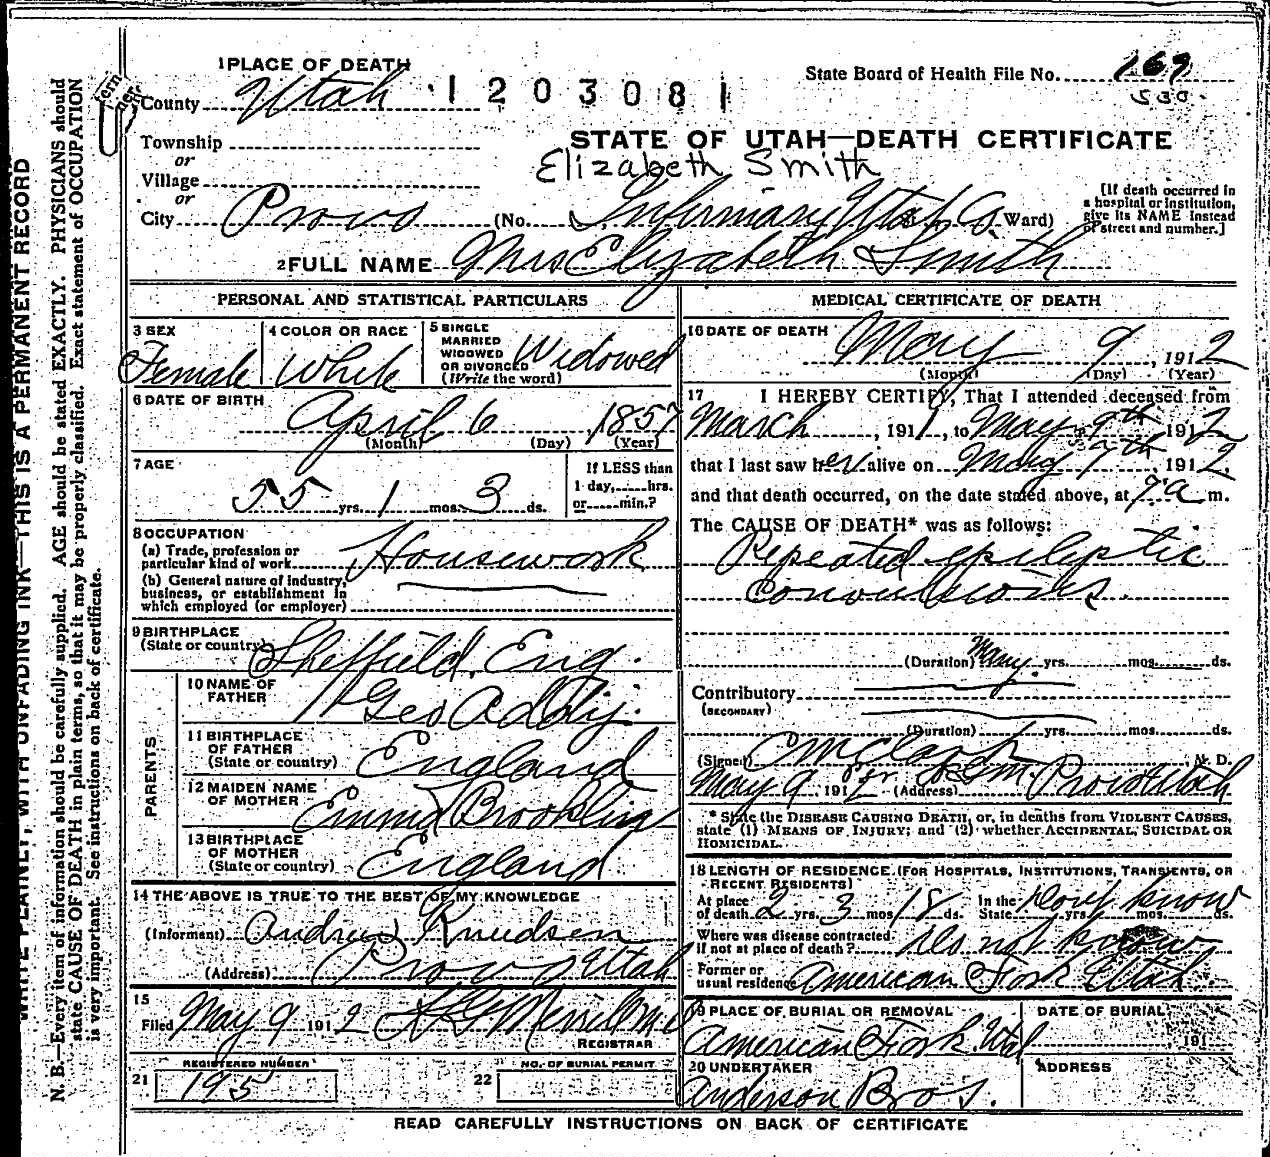 1 PLACE OF DEATH
County Utah
1203081
State Board of Health File No. 169
530
Township
or
Village
or
City Provo (No. Infirmary Utah Co. St. Ward)
STATE OF UTAH—DEATH CERTIFICATE
Elizabeth Smith
[If death occurred in
a hospital or institution,
give its NAME instead
of street and number.]
2 FULL NAME Mrs Elizabeth Smith
PERSONAL AND STATISTICAL PARTICULARS
3 SEX
Female
4 COLOR OR RACE
White
5 SINGLE
MARRIED
WIDOWED
OR DIVORCED
(Write the word)
Widowed
6 DATE OF BIRTH
April 6, 1857
(Month) (Day) (Year)
7 AGE
55 yrs. 1 mos. 3 ds.
If LESS than
1 day,.....hrs.
or.....min.?
8 OCCUPATION
(a) Trade, profession or
particular kind of work Housework
(b) General nature of industry,
business, or establishment in
which employed (or employer)
9 BIRTHPLACE
(State or country) Sheffield, Eng.
PARENTS
10 NAME OF
FATHER
Geo Addy.
11 BIRTHPLACE
OF FATHER
(State or country) England
12 MAIDEN NAME
OF MOTHER Emma
13 BIRTHPLACE
OF MOTHER
(State or country) England
14 THE ABOVE IS TRUE TO THE BEST OF MY KNOWLEDGE
(Informant) Andrew Knudsen
(Address) Provo Utah
15
Filed May 9 1912
REGISTRAR
REGISTERED NUMBER
21 195
NO. OF BURIAL PERMIT
22
MEDICAL CERTIFICATE OF DEATH
16 DATE OF DEATH
May 9, 1912
(Month) (Day) (Year)
17 I HEREBY CERTIFY, That I attended deceased from
March, 1911, to May 9th 1912
that I last saw her alive on May 7th, 1912,
and that death occurred, on the date stated above, at 7 a m.
The CAUSE OF DEATH* was as follows:
Repeated epileptic
convulsions.
(Duration) Many yrs. mos. ds.
Contributory
(SECONDARY)
(Duration) yrs. mos. ds.
(Signed) C M Clark, M. D.
May 9 1912 (Address) Provo Utah
* State the DISEASE CAUSING DEATH, or, in deaths from VIOLENT CAUSES,
state (1) MEANS OF INJURY; and (2) whether ACCIDENTAL, SUICIDAL OR
HOMICIDAL.
18 LENGTH OF RESIDENCE (FOR HOSPITALS, INSTITUTIONS, TRANSIENTS, OR
RECENT RESIDENTS)
At place
of death 2 yrs. 3 mos 18 ds.
In the
State Dont know yrs. mos. ds.
Where was disease contracted
if not at place of death? Do not know
Former or
usual residence American Fork Utah
19 PLACE OF BURIAL OR REMOVAL
American Fork. Utah
DATE OF BURIAL
191
20 UNDERTAKER
Anderson Bros.
ADDRESS
READ CAREFULLY INSTRUCTIONS ON BACK OF CERTIFICATE
WRITE PLAINLY, WITH UNFADING INK—THIS IS A PERMANENT RECORD
N. B.—Every item of information should be carefully supplied. AGE should be stated EXACTLY. PHYSICIANS should
state CAUSE OF DEATH in plain terms, so that it may be properly classified. Exact statement of OCCUPATION
is very important. See instructions on back of certificate.